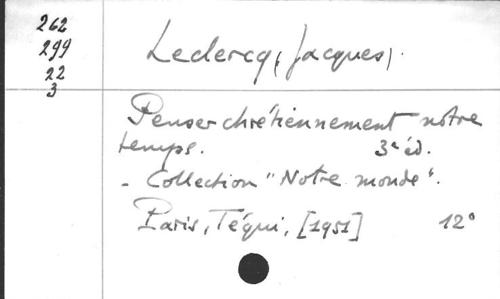 262
299
22
3
Leclercq (Jacques).
Penser chrétiennement notre
temps. 3e éd.
- Collection "Notre monde".
Paris, Téqui, [1951] 12°